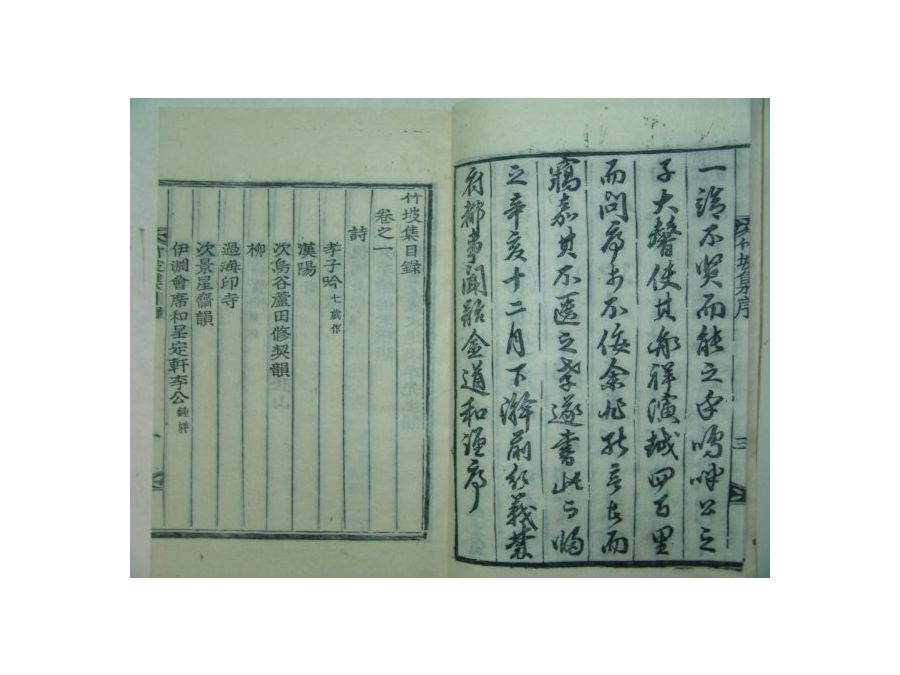 竹坡集序 三
一端不賢而能之乎嗚呼公之
子大馨使其祥演越四百里
而問序於不佞余非能言而
竊嘉其不匱之孝遂書此以歸
之辛亥十二月下澣前行義禁
府都事聞韶金道和謹序
竹坡集目錄
卷之一
詩
孝子吟 七歲作
漢陽
次烏谷蘆田修契韻
柳
過海印寺
次景星齋韻
伊淵會席和呈定軒李公 鍾祥
竹坡集目錄 一